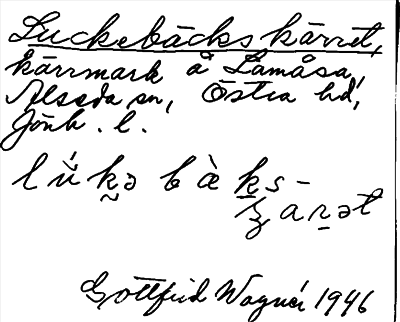 Luckebäckskärret,
kärrmark å Lamåsa,
Alseda sn, Östra hd,
Jönk. l.
lúkə bàks-
ʒarət
Gottfrid Wagnér 1946